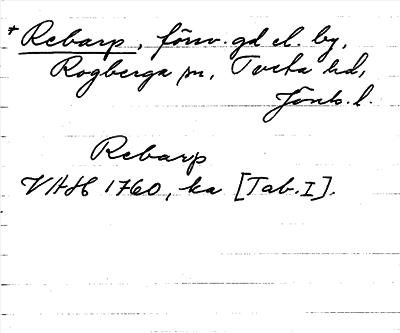 * Rebarp, försv. gd el. by,
Rogberga sn, Tveta hd,
Jönk. l.
Rebarp
VAH 1760, ka [Tab. I].